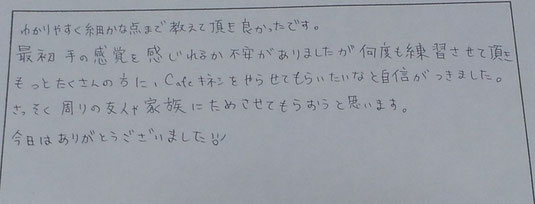 わかりやすく細かな点まで教えて頂き良かったです。
最初手の感覚を感じれるか不安がありましたが何度も練習させて頂き
もっとたくさんの方に、Cafeキネシをやらせてもらいたいなと自信がつきました。
さっそく周りの友人や家族にためさせてもらおうと思います。
今日はありがとうございました!!